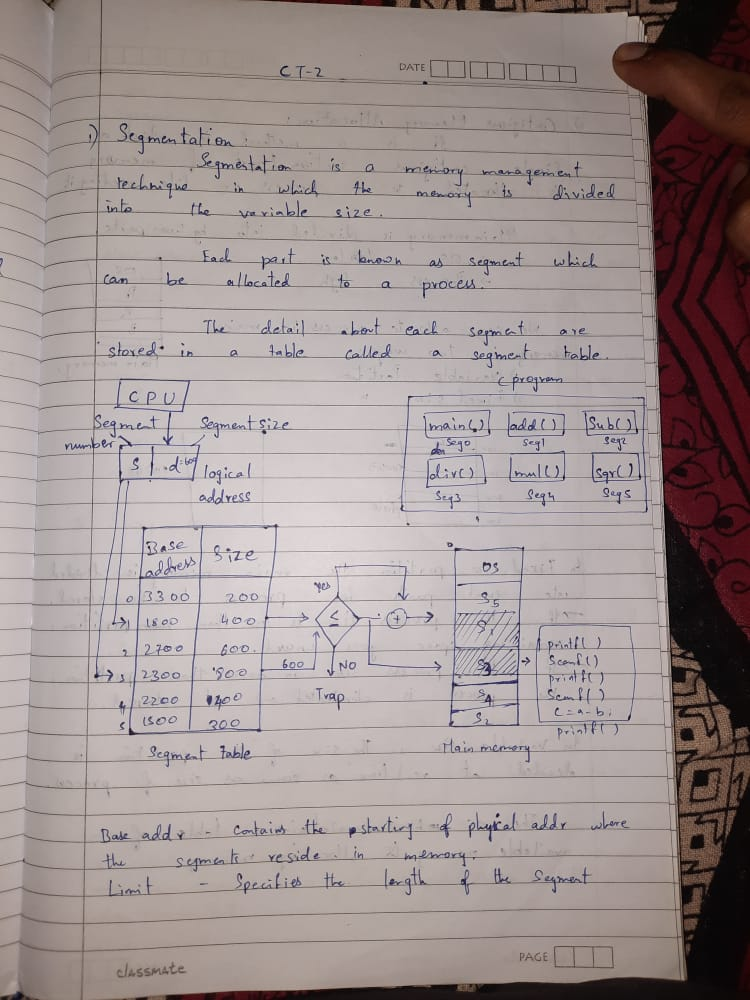 CT-2
DATE
1) Segmentation :
Segmentation is a memory management
technique in which the memory is divided
into the variable size.
Each part is known as segment which
can be allocated to a process.
The detail about each segment are
stored in a table called a segment table.
C program
CPU
main() add() Sub()
Seg0 Seg1 Seg2
div() mul() sqr()
Seg3 Seg4 Seg5
Segment number
Segment size
S d=600
logical address
Base address Size
0 3300 200
1 1800 400
2 2700 600
3 2300
4 2200
5 1500 300
Segment table
Yes
≤
+
600
NO
Trap
0
OS
S5
S1
S3
S4
S2
Main memory
printf()
Scanf()
printf()
Scanf()
c=a-b;
printf()
Base addr - contains the starting of physical addr where
the segments reside in memory.
Limit - Specifies the length of the segment
classmate
PAGE